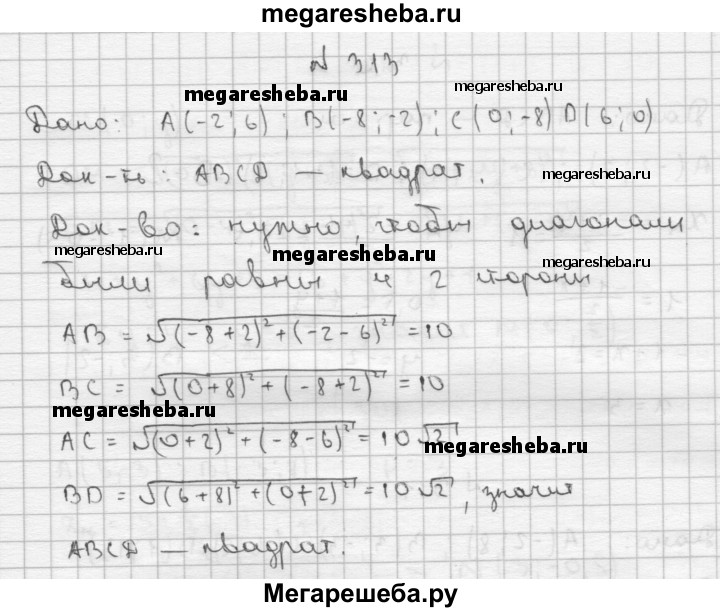 megaresheba.ru
N 313
megaresheba.ru
megaresheba.ru
Дано: A(-2; 6); B(-8; -2); C(0; -8) D(6; 0)
Док-ть: ABCD — квадрат.
megaresheba.ru
Док-во: нужно, чтобы диагонали
megaresheba.ru
megaresheba.ru
megaresheba.ru
были равны и 2 стороны
AB = √((-8+2)² + (-2-6)²) = 10
BC = √((0+8)² + (-8+2)²) = 10
megaresheba.ru
megaresheba.ru
AC = √((0+2)² + (-8-6)²) = 10√2
megaresheba.ru
BD = √((6+8)² + (0+2)²) = 10√2, значит
ABCD — квадрат.
Мегарешеба.ру